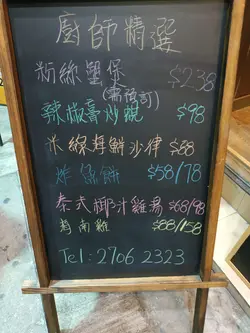 廚師精選
粉絲蟹煲 $238
(需預訂)
辣椒膏炒蜆 $98
米線海鮮沙律 $88
炸魚餅 $58/78
泰式椰汁雞湯 $68/98
海南雞 $88/158
Tel: 2706 2323